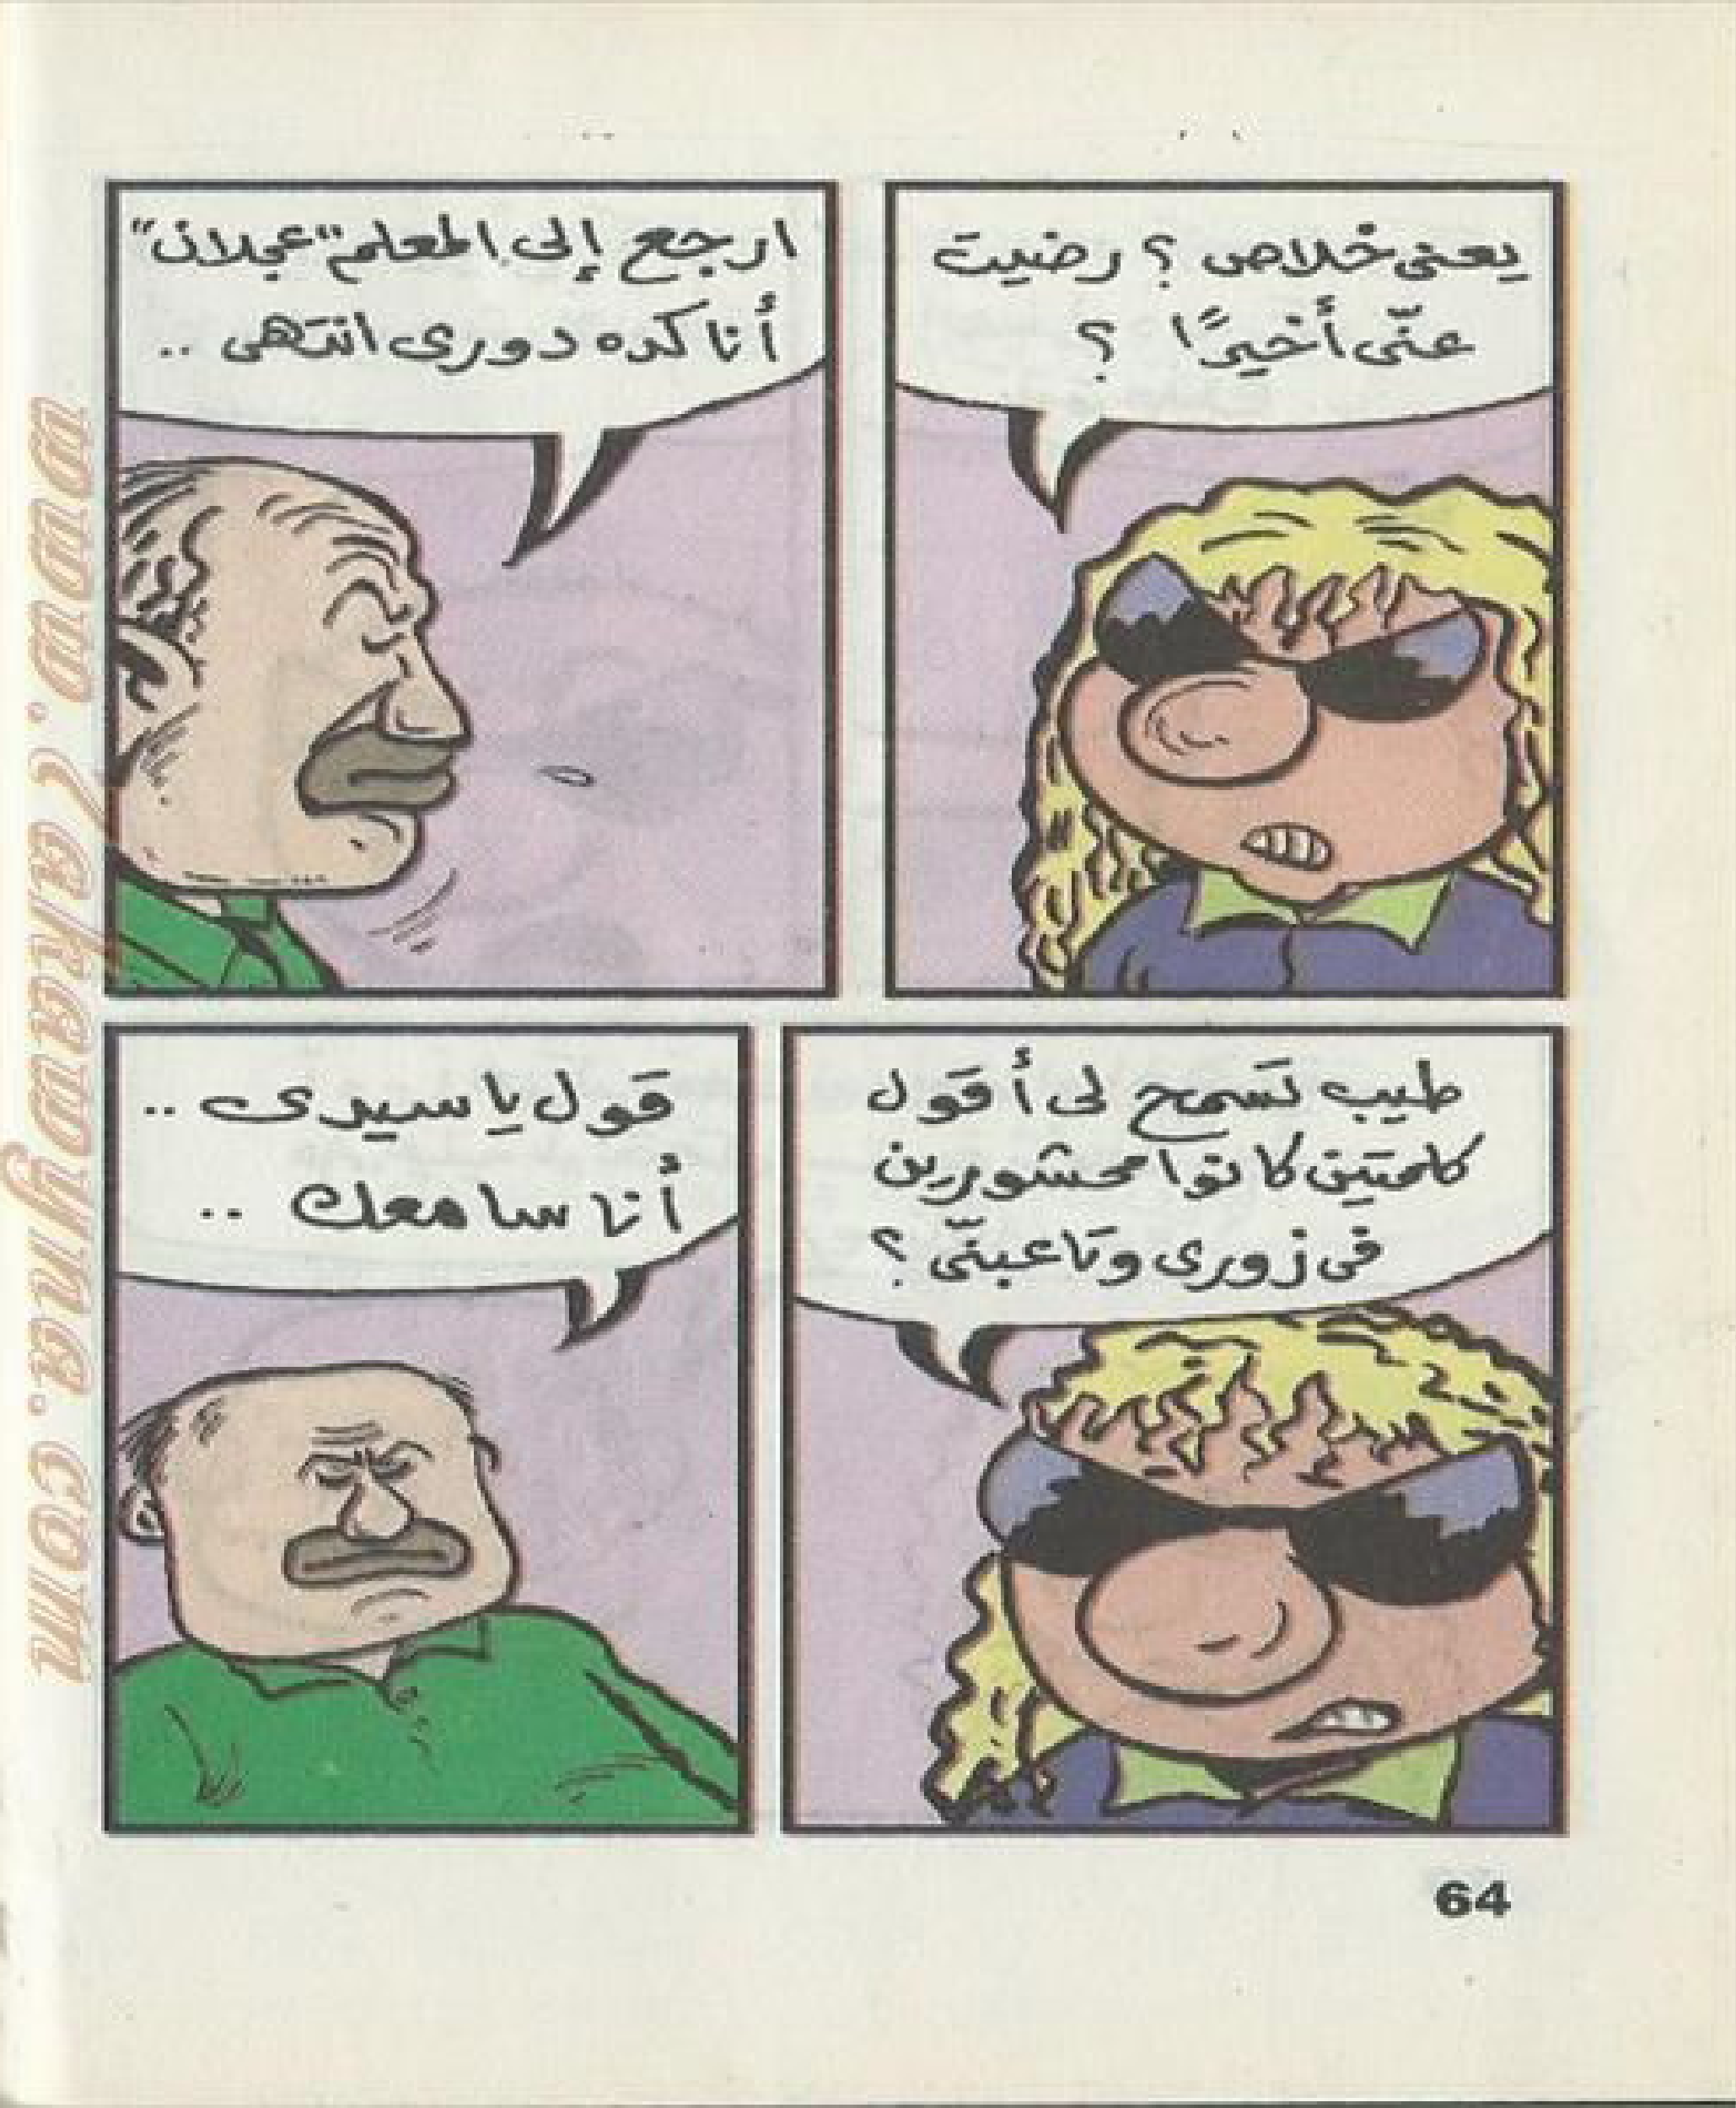 يعنى خلاص ؟ رضيت
عنّى أخيرًا ؟
ارجع إلى المعلم "عجلان"
أنا كده دورى انتهى ..
طيب تَسمح لى أقول
كلمتين كانوا محشورين
فى زورى وتاعبنّى ؟
قول يا سيدى ..
أنا سامعك ..
64
www.liilas.com